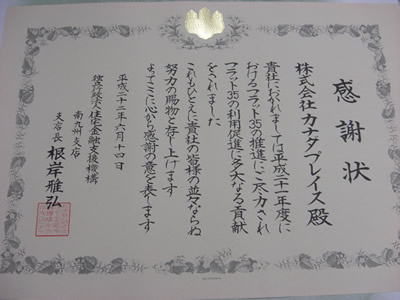 感謝状
株式会社カナダプレイス殿
貴社におかれましては平成二十一年度に
おけるフラット35の推進にご尽力され
フラット35の利用促進に多大なる貢献
をされました
これもひとえに貴社の皆様の並々ならぬ
努力の賜物と存し上げます
よってここに心から感謝の意を表します
平成二十二年六月十四日
独立行政法人住宅金融支援機構
南九州支店
支店長 根岸雅弘